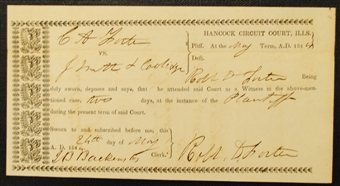 HANCOCK CIRCUIT COURT, ILLS.
C A Foster
VS.
J. Smith & Coolidge
Plff. At the May Term, A.D. 184
Deft.
Robt D Foster Being
duly sworn, deposes and says, that he attended said Court as a Witness in the above-mentioned case, two days, at the instance of the Plaintiff
the present term of said Court.
Sworn to and subscribed before me, this
24th day of May
A. D. 184
J B Backenstos Clerk.
Robt. D Foster